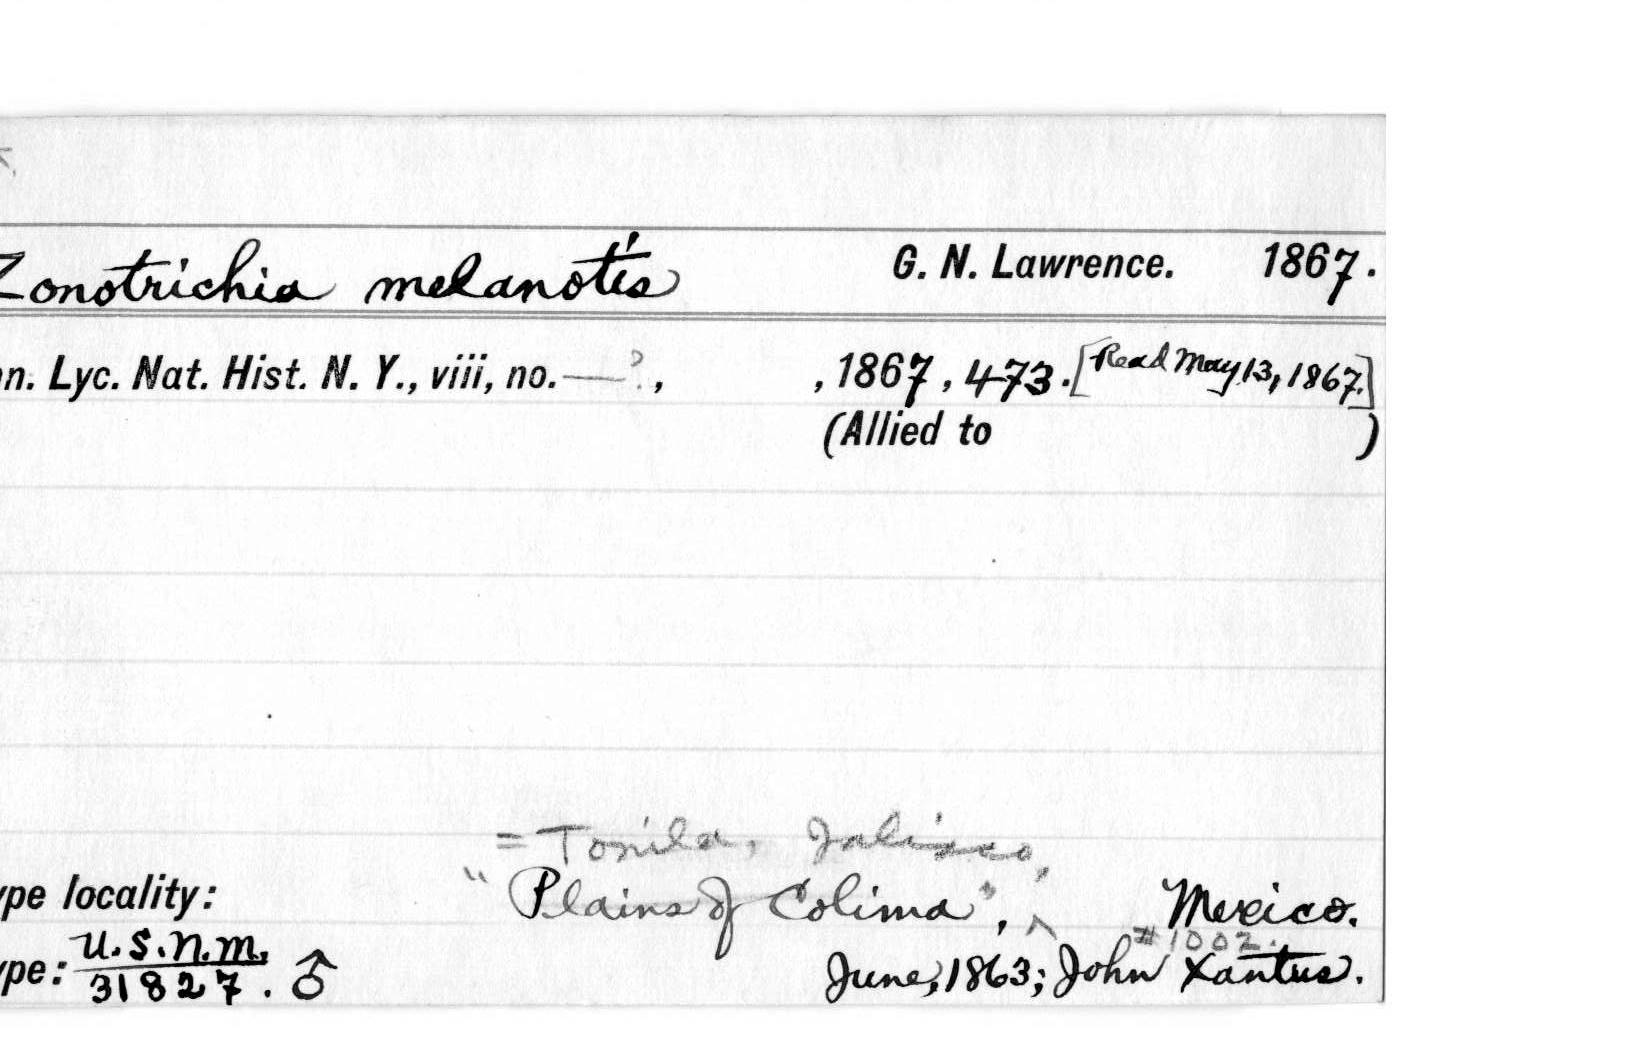 Zonotrichia melanotis G. N. Lawrence. 1867.
nn. Lyc. Nat. Hist. N. Y., viii, no. —?, , 1867, 473. [Read May 13, 1867.]
(Allied to )
= Tonila, Jalisco,
ype locality: "Plains of Colima", ^ Mexico.
#1002.
ype: U.S.N.M. 31827. ♂ June, 1863; John Xantus.